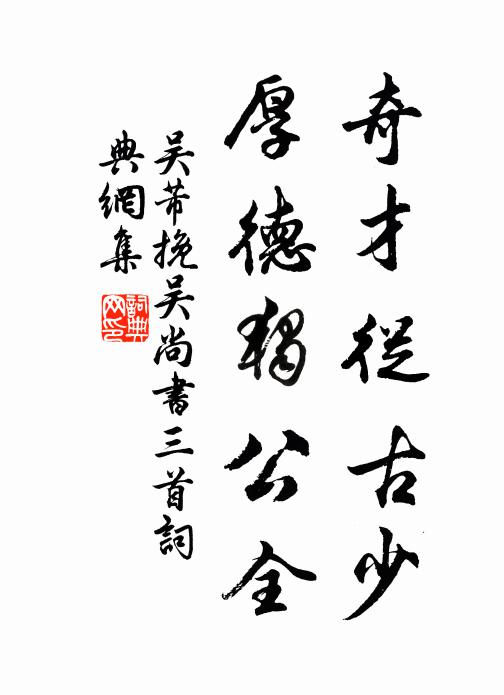 奇才從古少
厚德獨公全
吴芾挽吴尚書三首詞
典網集
詞典网印